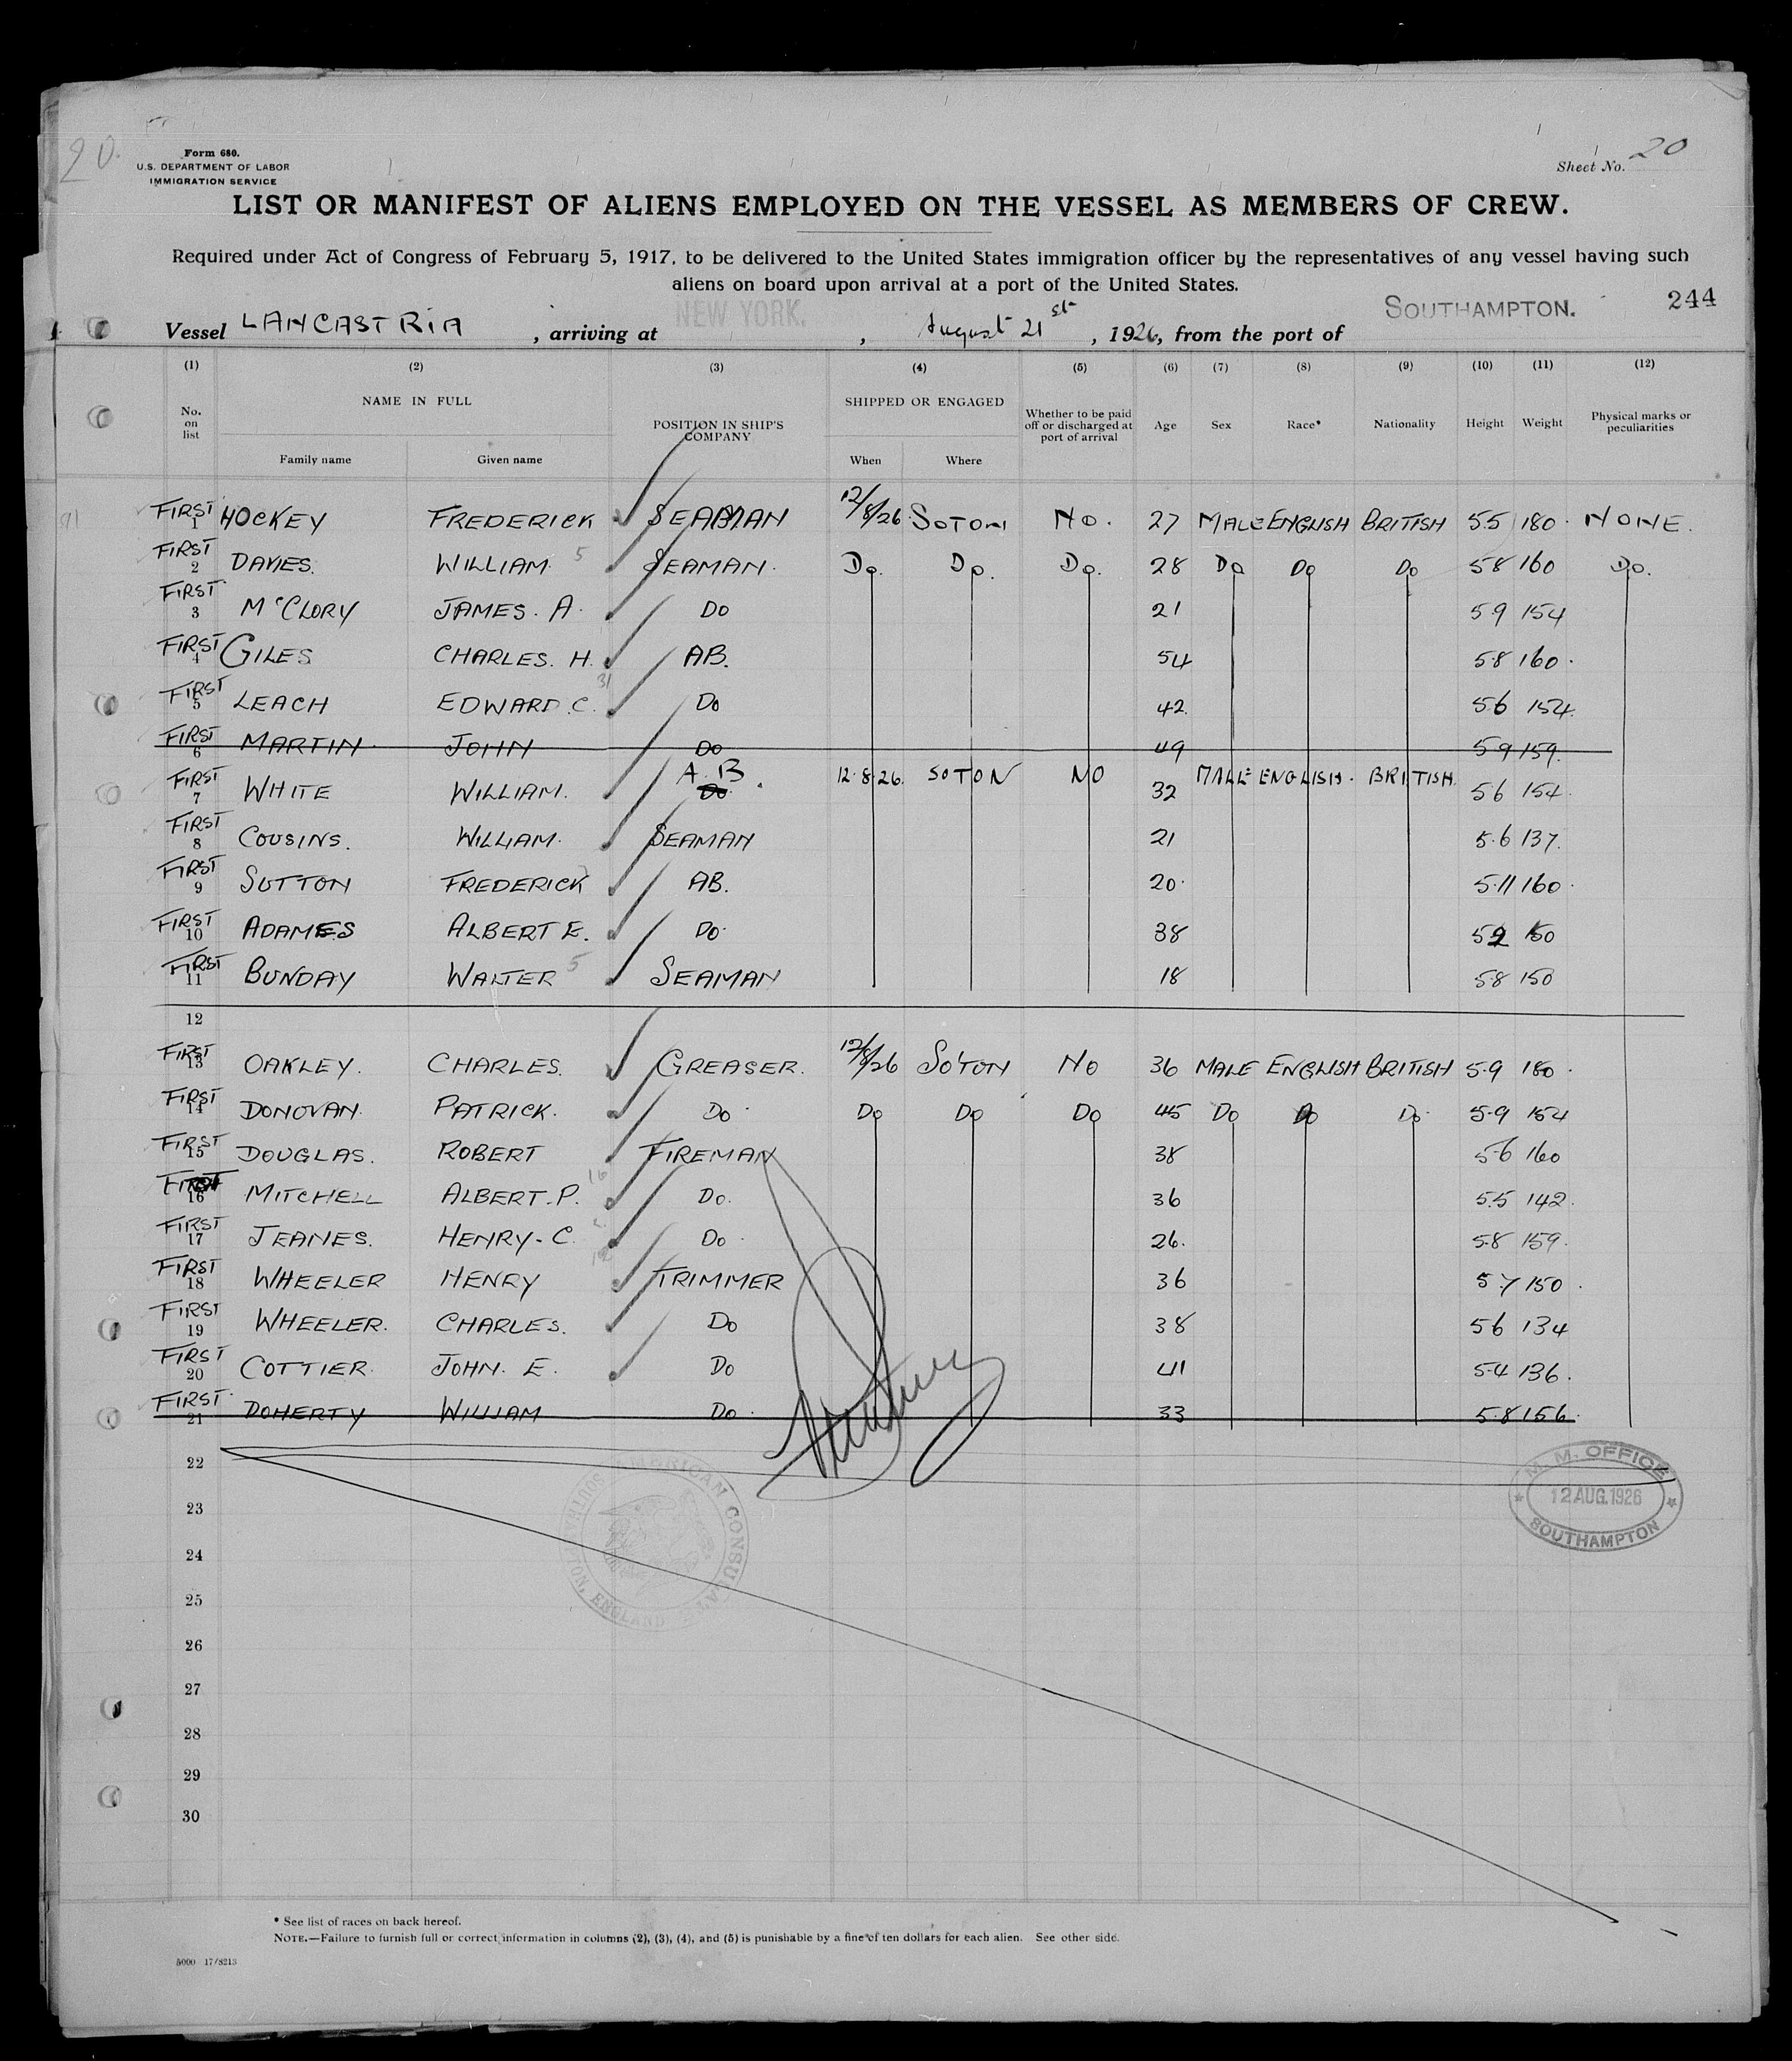 20.
Form 680.
U.S. DEPARTMENT OF LABOR
IMMIGRATION SERVICE
Sheet No. 20
LIST OR MANIFEST OF ALIENS EMPLOYED ON THE VESSEL AS MEMBERS OF CREW.
Required under Act of Congress of February 5, 1917, to be delivered to the United States immigration officer by the representatives of any vessel having such
aliens on board upon arrival at a port of the United States.
244
Vessel LANCASTRIA, arriving at NEW YORK., August 21st, 1926, from the port of SOUTHAMPTON.
(1) (2) (3) (4) (5) (6) (7) (8) (9) (10) (11) (12)
No. on list NAME IN FULL Family name Given name POSITION IN SHIP'S COMPANY SHIPPED OR ENGAGED When Where Whether to be paid off or discharged at port of arrival Age Sex Race* Nationality Height Weight Physical marks or peculiarities
91
FIRST 1 HOCKEY FREDERICK SEAMAN 12/8/26 SOTON NO. 27 MALE ENGLISH BRITISH 5.5 180 NONE.
FIRST 2 DAVIES. WILLIAM 5 SEAMAN. Do. Do. Do. 28 Do Do Do 5.8 160 Do.
FIRST 3 McCLORY JAMES. A. Do 21 5.9 154
FIRST 4 GILES CHARLES. H. AB. 54 5.8 160.
FIRST 5 LEACH EDWARD. C. 31 Do 42. 5.6 154.
FIRST 6 MARTIN. JOHN Do 49 5.9 159.
FIRST 7 WHITE WILLIAM. A.B. Do. 12.8.26. SOTON NO 32 MALE ENGLISH. BRITISH. 5.6 154.
FIRST 8 COUSINS. WILLIAM. SEAMAN 21 5.6 137.
FIRST 9 SUTTON FREDERICK AB. 20. 5.11 160.
FIRST 10 ADAMES ALBERT E. Do. 38 5.2 150
FIRST 11 BUNDAY WALTER 5 SEAMAN 18 5.8 150
12
FIRST 13 OAKLEY. CHARLES. GREASER. 12/8/26 SO'TON NO 36 MALE ENGLISH BRITISH 5.9 180.
FIRST 14 DONOVAN. PATRICK. Do. Do Do Do 45 Do Do Do. 5.9 154
FIRST 15 DOUGLAS. ROBERT FIREMAN 38 5.6 160
FIRST 16 MITCHELL ALBERT. P. 16 Do. 36 5.5 142.
FIRST 17 JEANES. HENRY. C. Do. 26. 5.8 159.
FIRST 18 WHEELER HENRY TRIMMER 36 5.7 150.
FIRST 19 WHEELER. CHARLES. Do 38 5.6 134
FIRST 20 COTTIER. JOHN. E. Do 41 5.4 136.
FIRST. 21 DOHERTY WILLIAM Do. 33 5.8 156.
22
23
24
25
26
27
28
29
30
AMERICAN CONSULATE SOUTHAMPTON, ENGLAND
M. M. OFFICE
12 AUG. 1926
SOUTHAMPTON
* See list of races on back hereof.
NOTE.—Failure to furnish full or correct information in columns (2), (3), (4), and (5) is punishable by a fine of ten dollars for each alien. See other side.
5000 17/8213